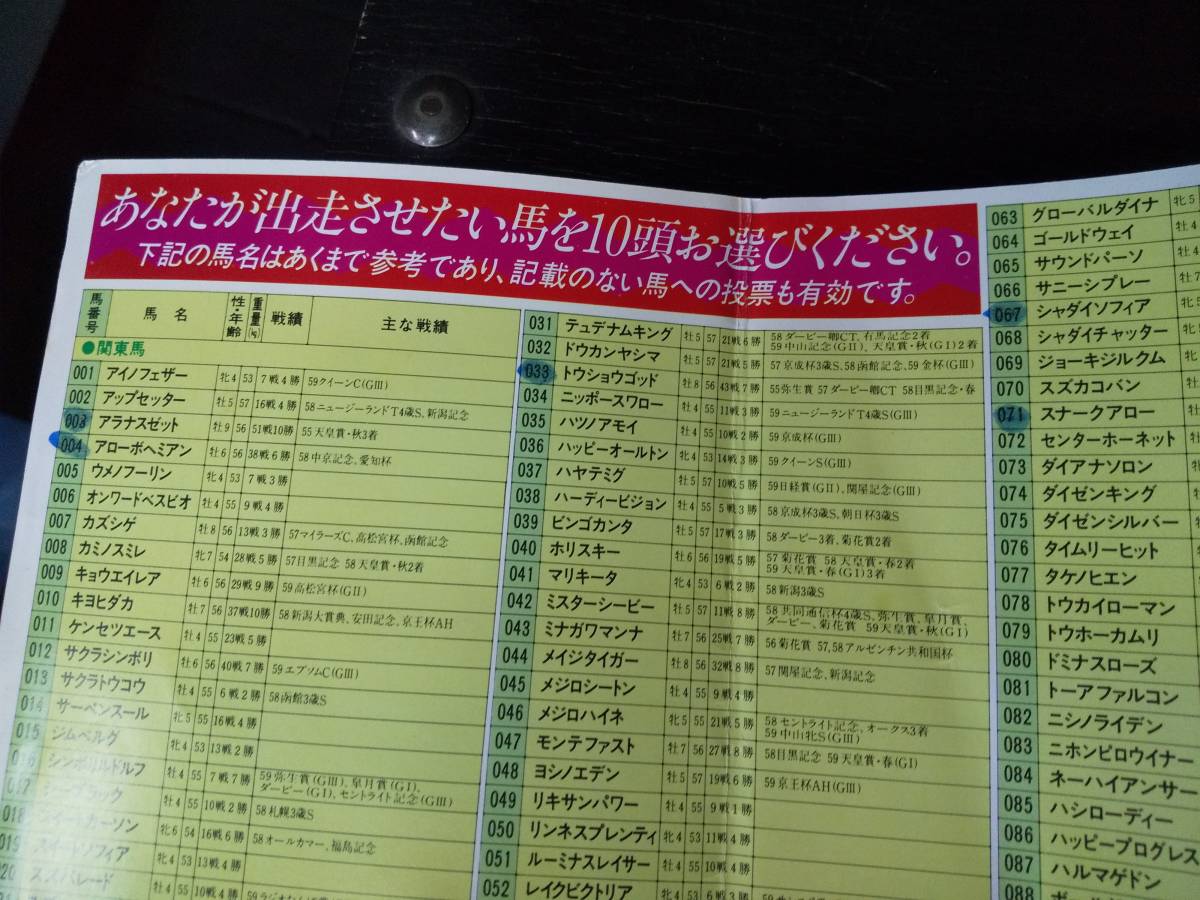 あなたが出走させたい馬を10頭お選びください。
下記の馬名はあくまで参考であり、記載のない馬への投票も有効です。
馬番号 馬名 性・年齢 重量(kg) 戦績 主な戦績
●関東馬
001 アイノフェザー 牝4 53 7戦4勝 59クイーンC(GIII)
002 アップセッター 牡5 57 16戦4勝 58ニュージーランドT4歳S、新潟記念
003 アラナスゼット 牡9 56 51戦10勝 55天皇賞・秋3着
004 アローボヘミアン 牡6 56 38戦6勝 58中京記念、愛知杯
005 ウメノフーリン 牝4 53 7戦3勝
006 オンワードベスビオ 牡4 55 9戦4勝
007 カズシゲ 牡8 56 13戦3勝 57マイラーズC、高松宮杯、函館記念
008 カミノスミレ 牝7 54 28戦5勝 57目黒記念 58天皇賞・秋2着
009 キョウエイレア 牡6 56 29戦9勝 59高松宮杯(GII)
010 キヨヒダカ 牡7 56 37戦10勝 58新潟大賞典、安田記念、京王杯AH
011 ケンセツエース 牡4 55 23戦5勝
012 サクラシンボリ 牡6 56 40戦7勝 59エプソムC(GIII)
013 サクラトウコウ 牡4 55 6戦2勝 58函館3歳S
014 サーペンスール 牝5 55 16戦4勝
015 ジムベルグ 牝4 53 13戦2勝
016 シンボリルドルフ 牡4 55 7戦7勝 59弥生賞(GIII)、皐月賞(GI)、
ダービー(GI)、セントライト記念(GIII)
017 ック 牡4 55 10戦2勝 58札幌3歳S
018 カーソン 牝6 54 16戦6勝 58オールカマー、福島記念
019 ートソフィア 牝4 53 13戦4勝
20 スズパレード 牡4 55 10戦4勝
031 テュデナムキング 牡5 57 21戦6勝 58ダービー卿CT、有馬記念2着
59中山記念(GII)、天皇賞・秋(GI)2着
032 ドウカンヤシマ 牡5 57 21戦5勝 57京成杯3歳S、58函館記念、59金杯(GIII)
033 トウショウゴッド 牡8 56 43戦7勝 55弥生賞 57ダービー卿CT 58目黒記念・春
034 ニッポースワロー 牡4 55 11戦3勝 59ニュージーランドT4歳S(GIII)
035 ハツノアモイ 牡4 55 10戦2勝 59京成杯(GIII)
036 ハッピーオールトン 牝4 53 14戦3勝 59クイーンS(GIII)
037 ハヤテミグ 牡5 57 10戦5勝 59日経賞(GII)、関屋記念(GIII)
038 ハーディービジョン 牡4 55 5戦3勝 58京成杯3歳S、朝日杯3歳S
039 ビンゴカンタ 牡5 57 17戦3勝 58ダービー3着、菊花賞2着
040 ホリスキー 牡6 56 19戦5勝 57菊花賞 58天皇賞・春2着
59天皇賞・春(GI)3着
041 マリキータ 牝4 53 6戦2勝 58新潟3歳S
042 ミスターシービー 牡5 57 11戦8勝 58共同通信杯4歳S、弥生賞、皐月賞、
ダービー、菊花賞 59天皇賞・秋(GI)
043 ミナガワマンナ 牡7 56 25戦7勝 56菊花賞 57,58アルゼンチン共和国杯
044 メイジタイガー 牡8 56 32戦8勝 57関屋記念、新潟記念
045 メジロシートン 牡4 55 9戦4勝
046 メジロハイネ 牝5 55 21戦5勝 58セントライト記念、オークス3着
59中山牝S(GIII)
047 モンテファスト 牡7 56 27戦8勝 58目黒記念 59天皇賞・春(GI)
048 ヨシノエデン 牡5 57 19戦6勝 59京王杯AH(GIII)
049 リキサンパワー 牡4 55 9戦1勝
050 リンネスプレンティ 牝4 53 11戦4勝
051 ルーミナスレイサー 牡4 55 10戦4勝
052 レイクビクトリア 牝4 53 6戦3勝
063 グローバルダイナ 牝5
064 ゴールドウェイ 牡4
065 サウンドバーソ 牡4
066 サニーシプレー 牡7
067 シャダイソフィア 牝5
068 シャダイチャッター
069 ジョーキジルクム
070 スズカコバン
071 スナークアロー
072 センターホーネット
073 ダイアナソロン
074 ダイゼンキング
075 ダイゼンシルバー
076 タイムリーヒット
077 タケノヒエン
078 トウカイローマン
079 トウホーカムリ
080 ドミナスローズ
081 トーアファルコン
082 ニシノライデン
083 ニホンピロウイナー
084 ネーハイアンサー
085 ハシローディー
086 ハッピープログレス
087 ハルマゲドン
088